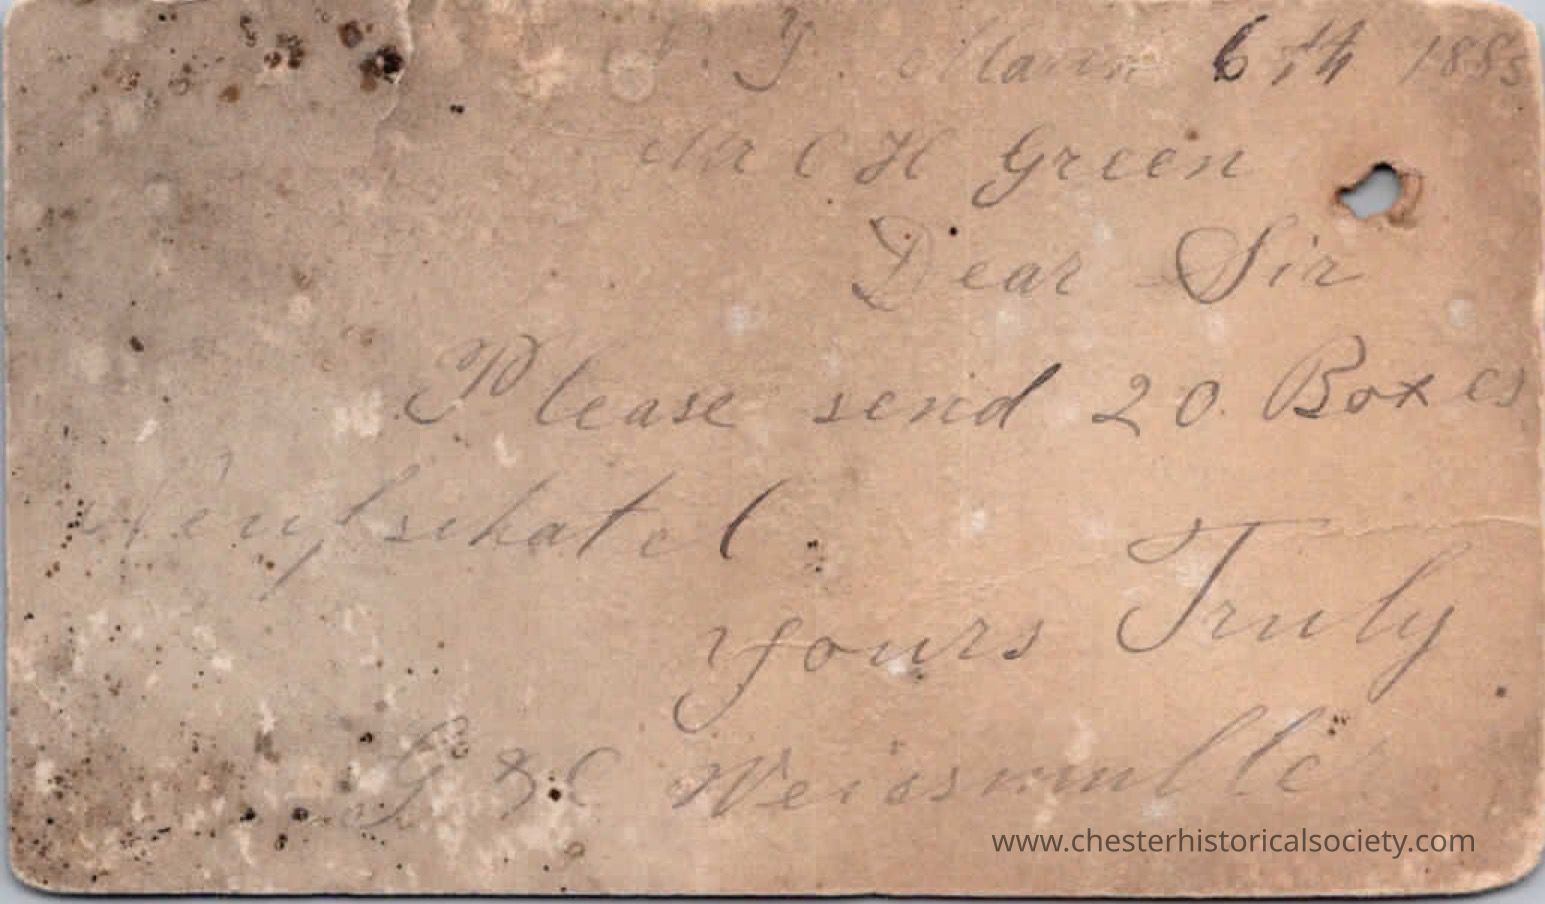 N. Y. March 6th 1885
Mr C H Green
Dear Sir
Please send 20 Boxes
Neufschatel
Yours Truly
G & C
www.chesterhistoricalsociety.com